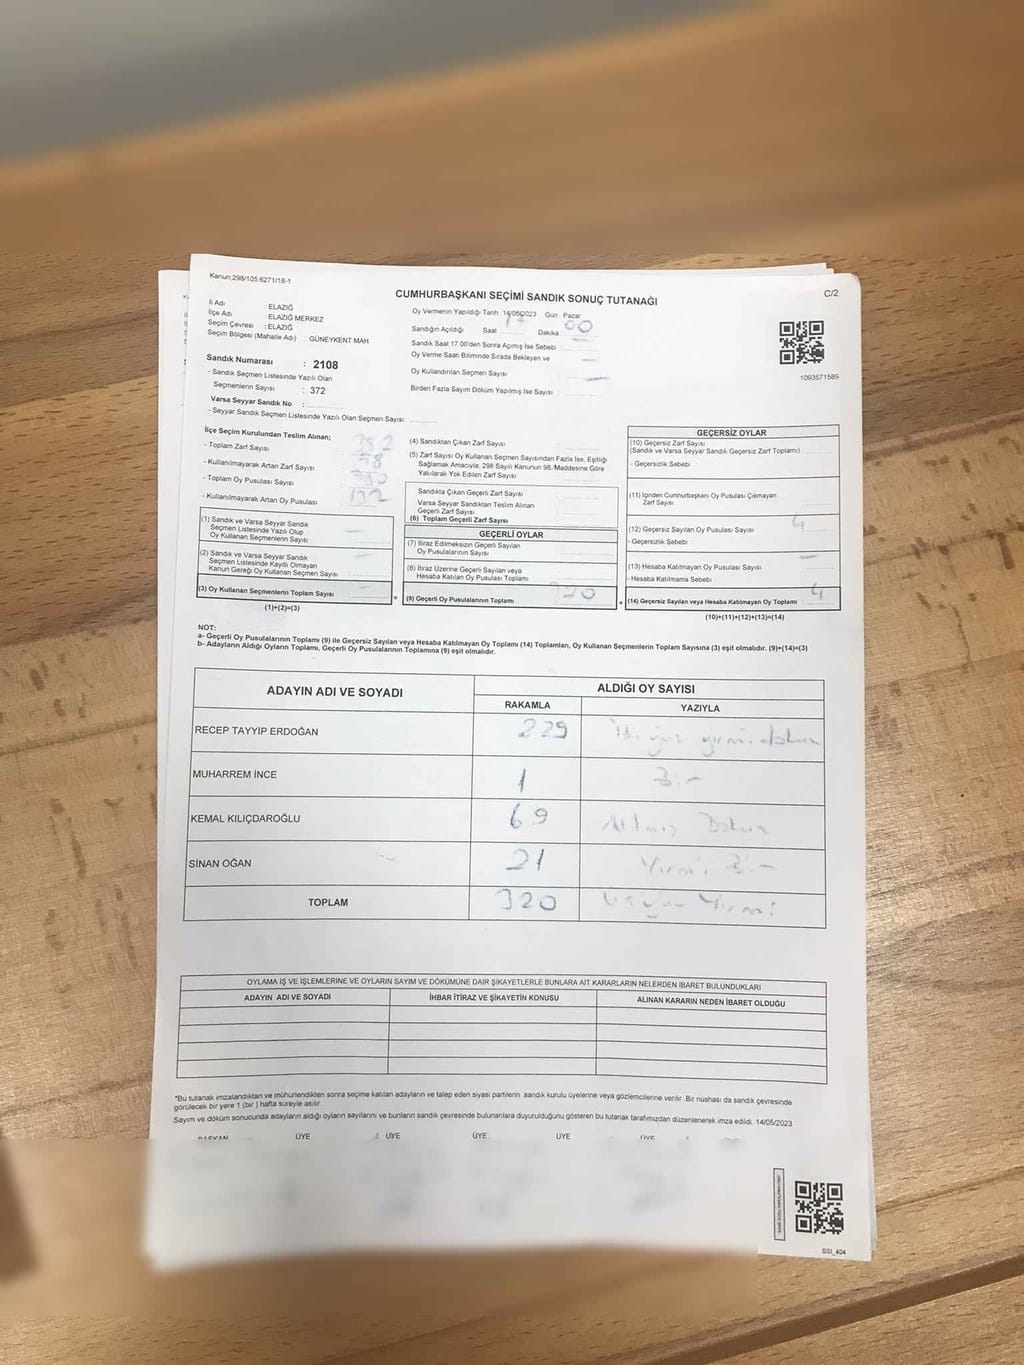 Kanun:298/105;6271/18-1
CUMHURBAŞKANI SEÇİMİ SANDIK SONUÇ TUTANAĞI
C/2
İl Adı : ELAZIĞ
İlçe Adı : ELAZIĞ MERKEZ
Seçim Çevresi : ELAZIĞ
Seçim Bölgesi (Mahalle Adı) GÜNEYKENT MAH
Sandık Numarası : 2108
- Sandık Seçmen Listesinde Yazılı Olan
Seçmenlerin Sayısı : 372
Varsa Seyyar Sandık No :
- Seyyar Sandık Seçmen Listesinde Yazılı Olan Seçmen Sayısı:
Oy Vermenin Yapıldığı Tarih : 14/05/2023 Gün : Pazar
Sandığın Açıldığı Saat 17 Dakika 00
Sandık Saat 17.00'den Sonra Açımış İse Sebebi
Oy Verme Saati Bitiminde Sırada Bekleyen ve
Oy Kullandırılan Seçmen Sayısı
Birden Fazla Sayım Döküm Yapılmış İse Sayısı
1093571589
İlçe Seçim Kurulundan Teslim Alınan;
- Toplam Zarf Sayısı
- Kullanılmayarak Artan Zarf Sayısı
- Toplam Oy Pusulası Sayısı
- Kullanılmayarak Artan Oy Pusulası
(1) Sandık ve Varsa Seyyar Sandık
Seçmen Listesinde Yazılı Olup
Oy Kullanan Seçmenlerin Sayısı
(2) Sandık ve Varsa Seyyar Sandık
Seçmen Listesinde Kayıtlı Olmayan
Kanun Gereği Oy Kullanan Seçmen Sayısı
(3) Oy Kullanan Seçmenlerin Toplam Sayısı =
(1)+(2)=(3)
(4) Sandıktan Çıkan Zarf Sayısı
(5) Zarf Sayısı Oy Kullanan Seçmen Sayısından Fazla İse, Eşitliği
Sağlamak Amacıyla, 298 Sayılı Kanunun 98. Maddesine Göre
Yakılarak Yok Edilen Zarf Sayısı
Sandıkta Çıkan Geçerli Zarf Sayısı
Varsa Seyyar Sandıktan Teslim Alınan
Geçerli Zarf Sayısı
(6) Toplam Geçerli Zarf Sayısı
GEÇERLİ OYLAR
(7) İtiraz Edilmeksizin Geçerli Sayılan
Oy Pusulalarının Sayısı
(8) İtiraz Üzerine Geçerli Sayılan veya
Hesaba Katılan Oy Pusulası Toplamı
(9) Geçerli Oy Pusulalarının Toplamı 320 +
GEÇERSİZ OYLAR
(10) Geçersiz Zarf Sayısı
(Sandık ve Varsa Seyyar Sandık Geçersiz Zarf Toplamı)
- Geçersizlik Sebebi
(11) İçinden Cumhurbaşkanı Oy Pusulası Çıkmayan
Zarf Sayısı
(12) Geçersiz Sayılan Oy Pusulası Sayısı 4
- Geçersizlik Sebebi
(13) Hesaba Katılmayan Oy Pusulası Sayısı
- Hesaba Katılmama Sebebi
(14) Geçersiz Sayılan veya Hesaba Katılmayan Oy Toplamı 4
(10)+(11)+(12)+(13)=(14)
NOT:
a- Geçerli Oy Pusulalarının Toplamı (9) ile Geçersiz Sayılan veya Hesaba Katılmayan Oy Toplamı (14) Toplamları, Oy Kullanan Seçmenlerin Toplam Sayısına (3) eşit olmalıdır. (9)+(14)=(3)
b- Adayların Aldığı Oyların Toplamı, Geçerli Oy Pusulalarının Toplamına (9) eşit olmalıdır.
ADAYIN ADI VE SOYADI ALDIĞI OY SAYISI
RAKAMLA YAZIYLA
RECEP TAYYİP ERDOĞAN 229 İki yüz yirmi dokuz
MUHARREM İNCE 1 Bir
KEMAL KILIÇDAROĞLU 69 Altmış Dokuz
SİNAN OĞAN 21 Yirmi Bir
TOPLAM 320 Üçyüz Yirmi
OYLAMA İŞ VE İŞLEMLERİNE VE OYLARIN SAYIM VE DÖKÜMÜNE DAİR ŞİKAYETLERLE BUNLARA AİT KARARLARIN NELERDEN İBARET BULUNDUKLARI
ADAYIN ADI VE SOYADI İHBAR İTİRAZ VE ŞİKAYETİN KONUSU ALINAN KARARIN NEDEN İBARET OLDUĞU
*Bu tutanak imzalandıktan ve mühürlendikten sonra seçime katılan adayların ve talep eden siyasi partilerin sandık kurulu üyelerine veya gözlemcilerine verilir. Bir nüshası da sandık çevresinde
görülecek bir yere 1 (bir ) hafta süreyle asılır.
Sayım ve döküm sonucunda adayların aldığı oyların sayılarını ve bunların sandık çevresinde bulunanlara duyurulduğunu gösteren bu tutanak tarafımızdan düzenlenerek imza edildi. 14/05/2023
BAŞKAN ÜYE ÜYE ÜYE ÜYE ÜYE
SSI_404